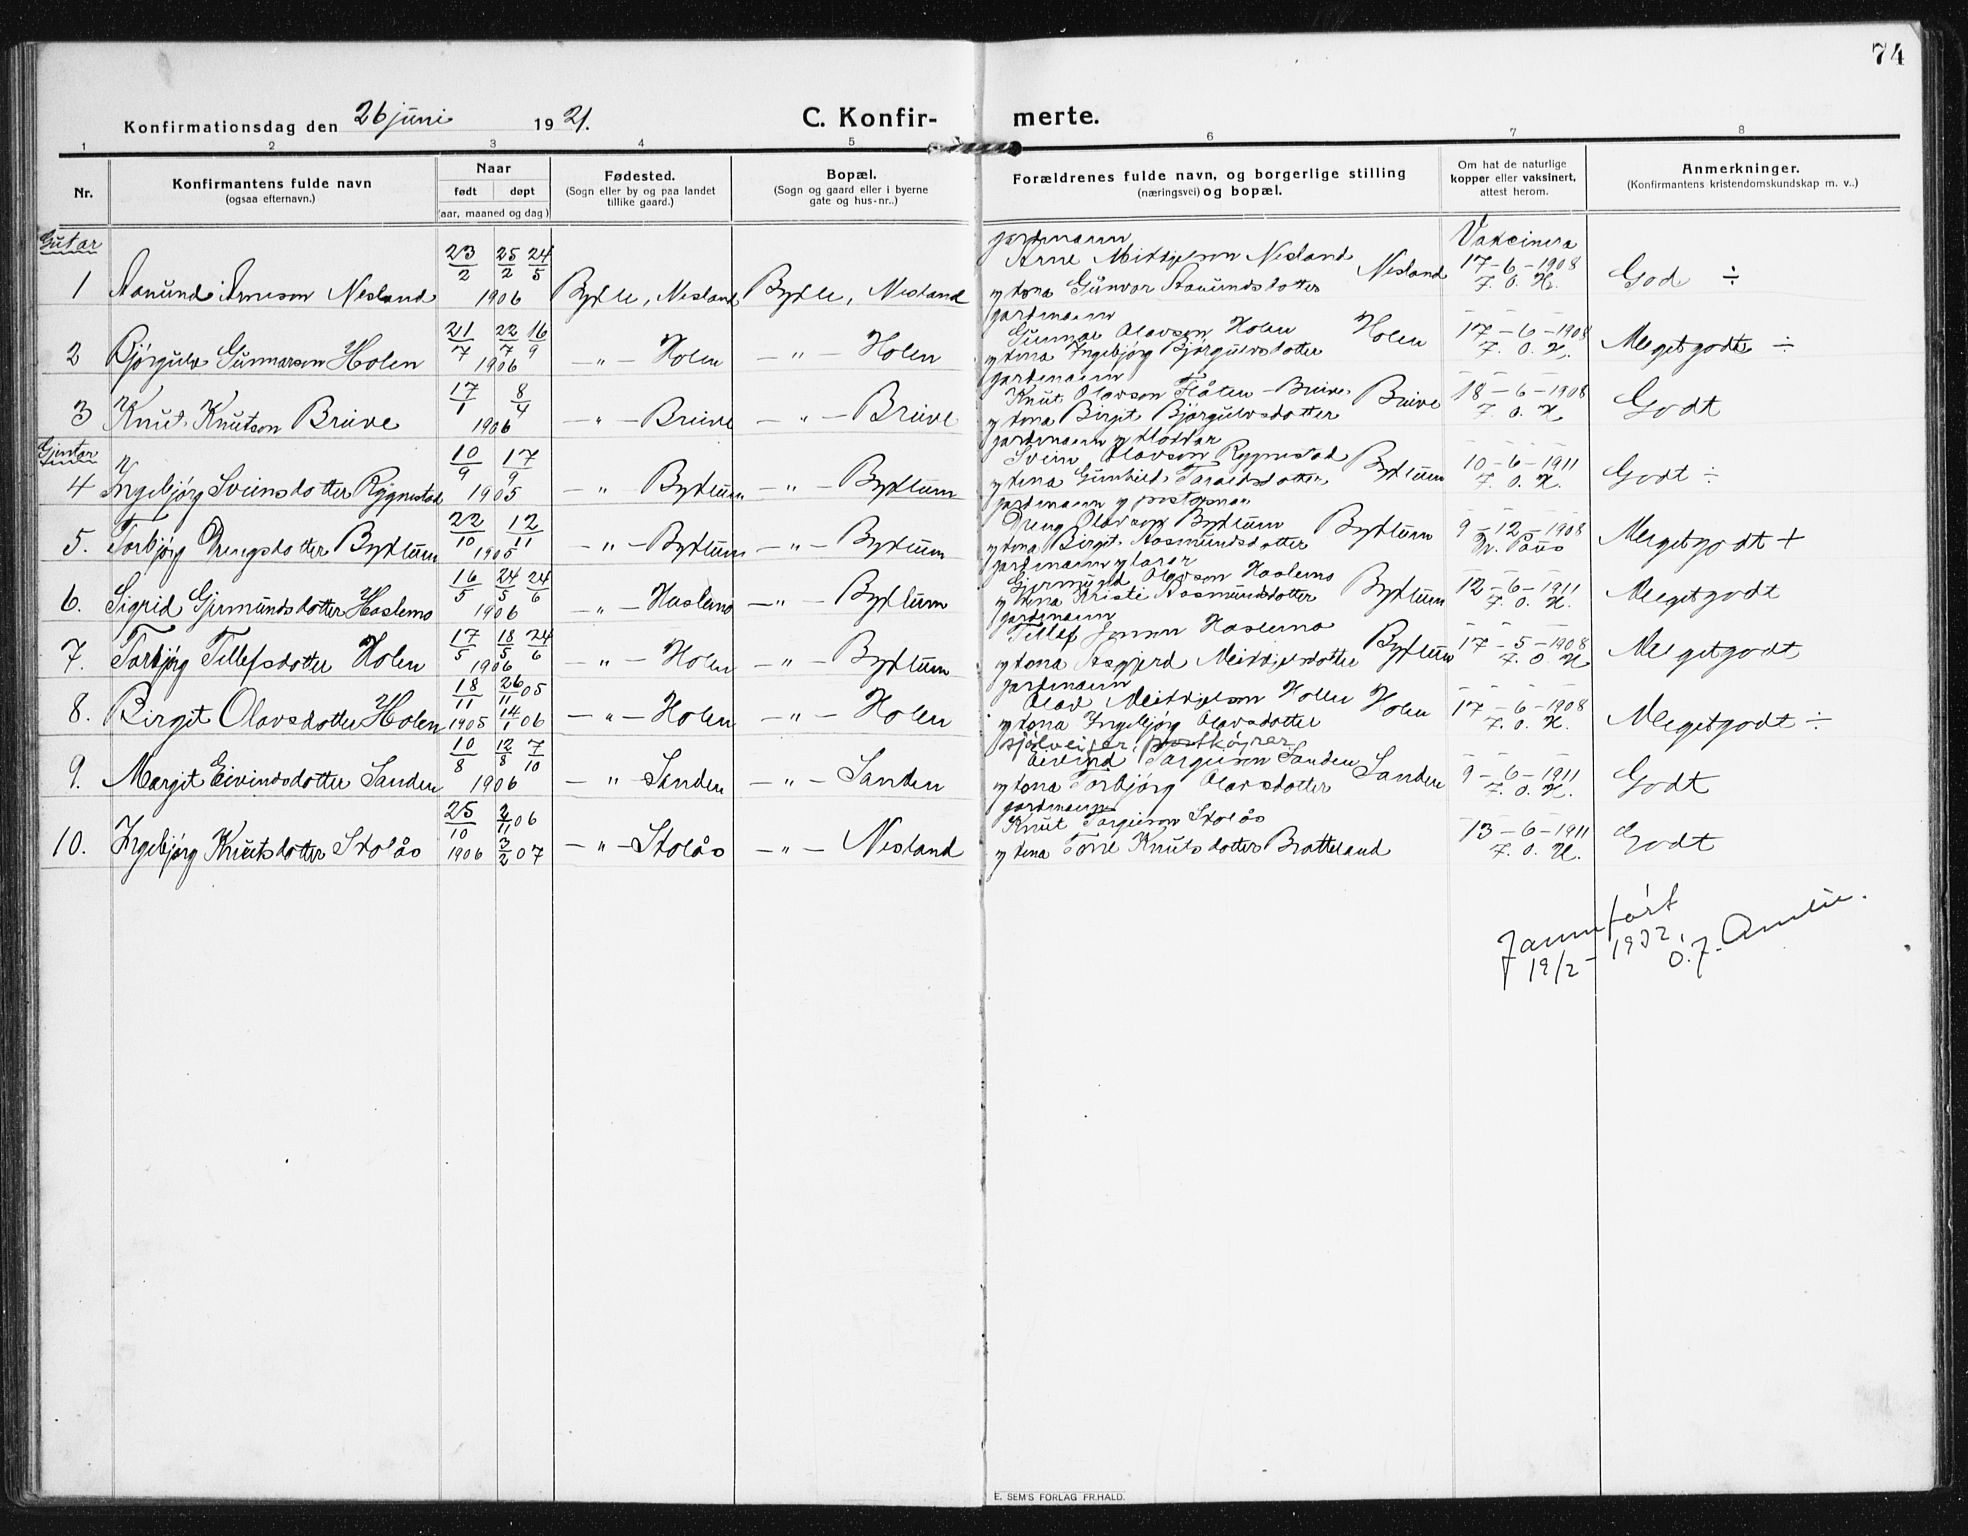 74
Konfirmationsdag den 26 juni 1921. C. Konfir- merte.
1 2 3 4 5 6 7 8
Nr. Konfirmantens fulde navn (ogsaa efternavn.) Naar født døpt (aar, maaned og dag) Fødested. (Sogn eller by og paa landet tillike gaard.) Bopæl. (Sogn og gaard eller i byerne gate og hus-nr..) Forældrenes fulde navn, og borgerlige stilling (næringsvei) og bopæl. Om hat de naturlige kopper eller vaksinert, attest herom. Anmerkninger. (Konfirmantens kristendomskundskap m. v..)
Gutar
gardmann Vakcinera
1 Aanund Arneson Nesland 23/2 25/2 24/5 1906 Bykle, Nesland Bykle, Nesland Arne Nesland Nesland 17-6-1908 God ÷
y kona Gunvor Aanundsdotter F. O. H.
gardmann
2 Bjørgulv Gunnarson Holen 21/7 22/7 16/9 1906 -"- Holen -"- Holen Gunnar Olavson Holen Holen 17-6-1908 Megetgodt ÷
y kona Ingebjørg Bjørgulvsdotter F. O. H.
gardmann
3 Knut Knutson Breive 17/1 8/4 1906 -"- Breive -"- Breive Knut Olavson Flåten-Breive Breive 18-6-1908 Godt
y kona Birgit Bjørgulvsdotter F. O. H.
Gjentar
gardmann y klokkar
4 Ingebjørg Sveinsdotter Rygnestad 10/9 17/9 1905 -"- Byklum -"- Byklum Svein Olavson Rygnestad Byklum 10-6-1911 Godt ÷
y kona Gunhild Taraldsdotter F. O. H.
gardmann y postopnar
5. Torbjørg Drengsdotter Byklum 22/10 12/11 1905 -"- Byklum -"- Byklum Dreng Olavson Byklum Byklum 9-12-1908 Megetgodt +
y kona Birgit Aasmundsdotter
gardmann y lærar
6. Sigrid Gjermundsdotter Haslemo 16/5 24/5 24/6 1906 -"- Haslemo -"- Byklum Gjermund Olavson Haslemo Byklum 12-6-1911 Megetgodt
y kona Kristi Aasmundsdotter F. O. H.
gardmann
7. Torbjørg Tellefsdotter Holen 17/5 18/5 24/6 1906 -"- Holen -"- Byklum Tellef Haslemo Byklum 17-5-1908 Megetgodt
y kona Asgjerd Meikjelsdotter F. O. H.
gardmann
8. Birgit Olavsdotter Holen 18/11 1905 26/11 05 14/1 06 -"- Holen -"- Holen Olav Meikjelson Holen Holen 17-6-1908 Megetgodt ÷
y kona Ingebjørg Olavsdotter F. O. H.
sjølveigar, postkøyrer
9. Margit Eivindsdotter Sanden 10/8 12/8 7/10 1906 -"- Sanden -"- Sanden Eivind Targeison Sanden Sanden 9-6-1911 Godt
y kona Torbjørg Olavsdotter F. O. H.
gardmann
10. Ingebjørg Knutsdotter Stolås 25/10 1906 2/11 06 3/2 07 -"- Stolås -"- Nesland Knut Targeison Stolås 13-6-1911 Godt
y kona Tone Knutsdotter Bratteland F. O. H.
Jamnført
19/2-1932.
O. J.
E. SEM'S FORLAG FR.HALD.